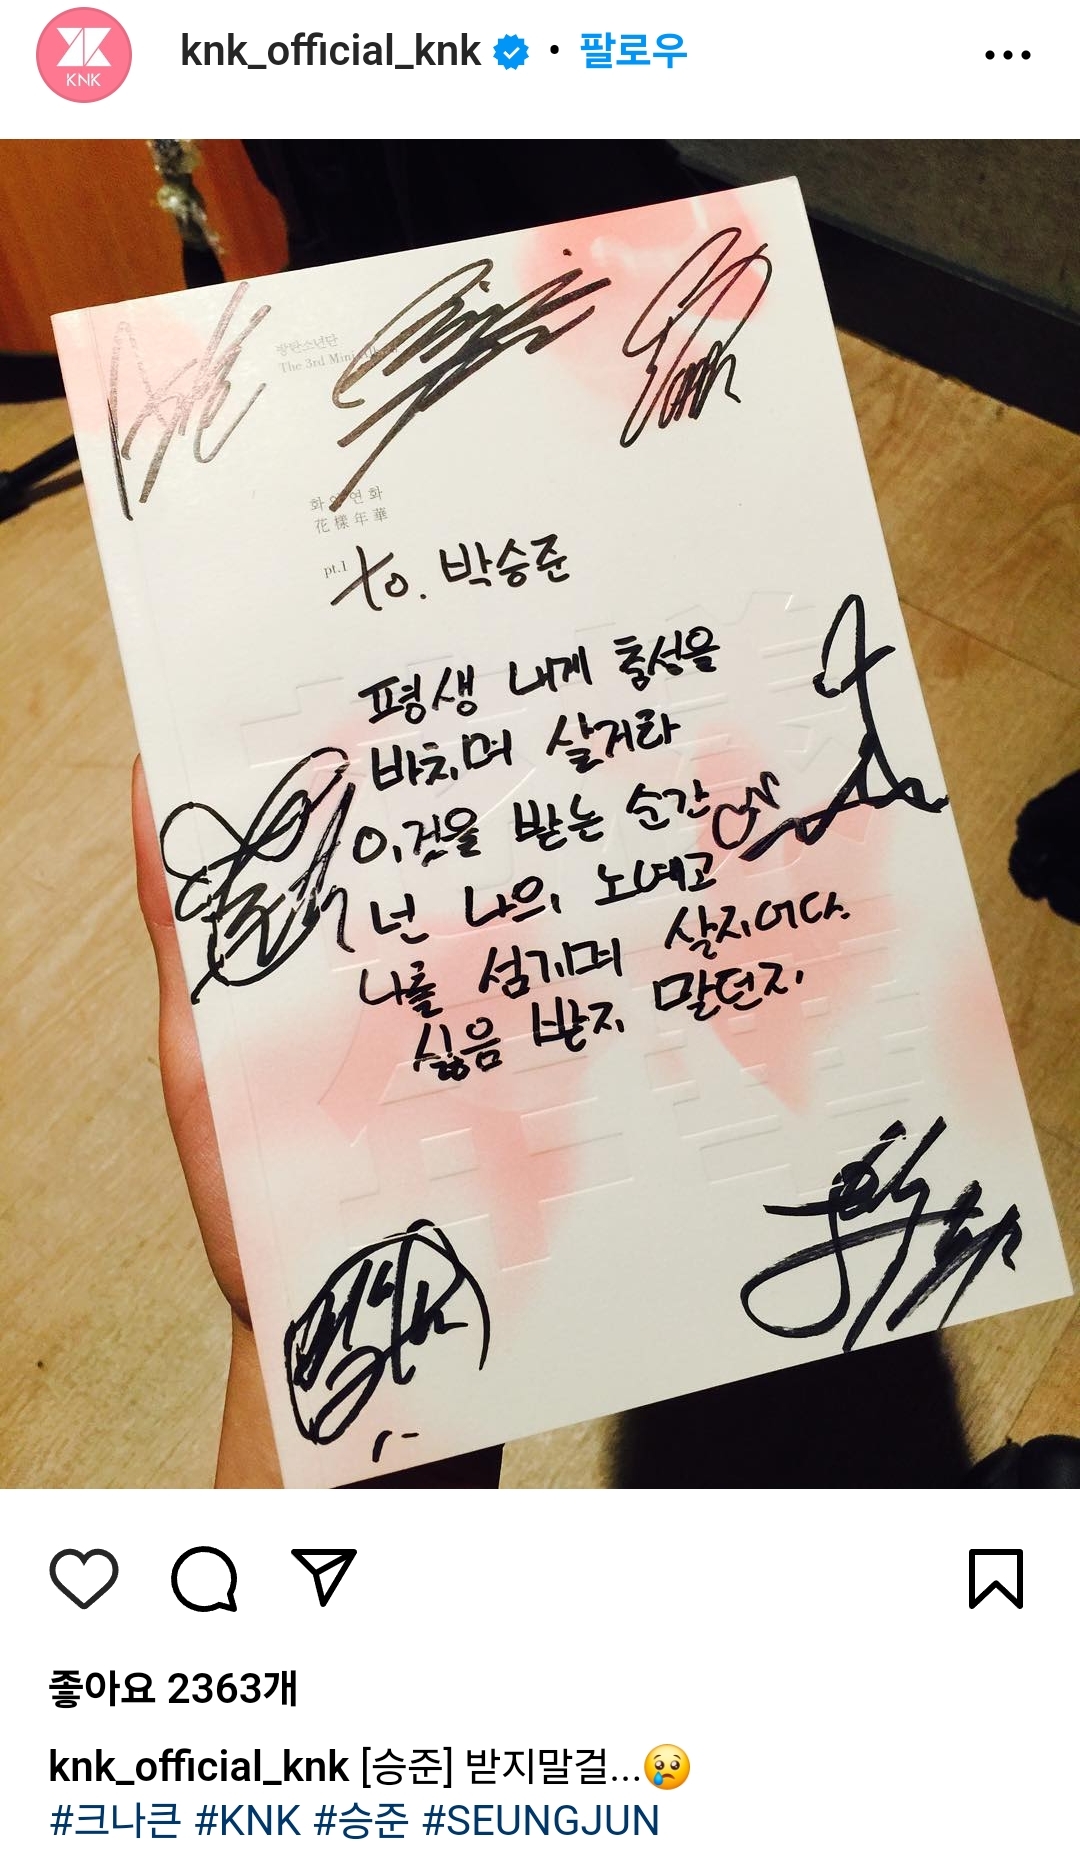 KNK
knk_official_knk • 팔로우
방탄소년단
The 3rd Mini
화양연화
花樣年華
pt.1
to. 박승준
평생 내게 충성을
바치며 살거라
이것을 받는 순간
넌 나의 노예고
나를 섬기며 살지어다.
싫음 받지 말던지
좋아요 2363개
knk_official_knk [승준] 받지말걸...😢
#크나큰 #KNK #승준 #SEUNGJUN